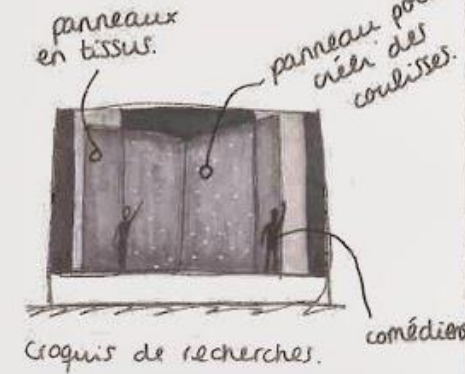 panneaux
en tissus.
panneau
créer des
coulisses.
Croquis de recherches.